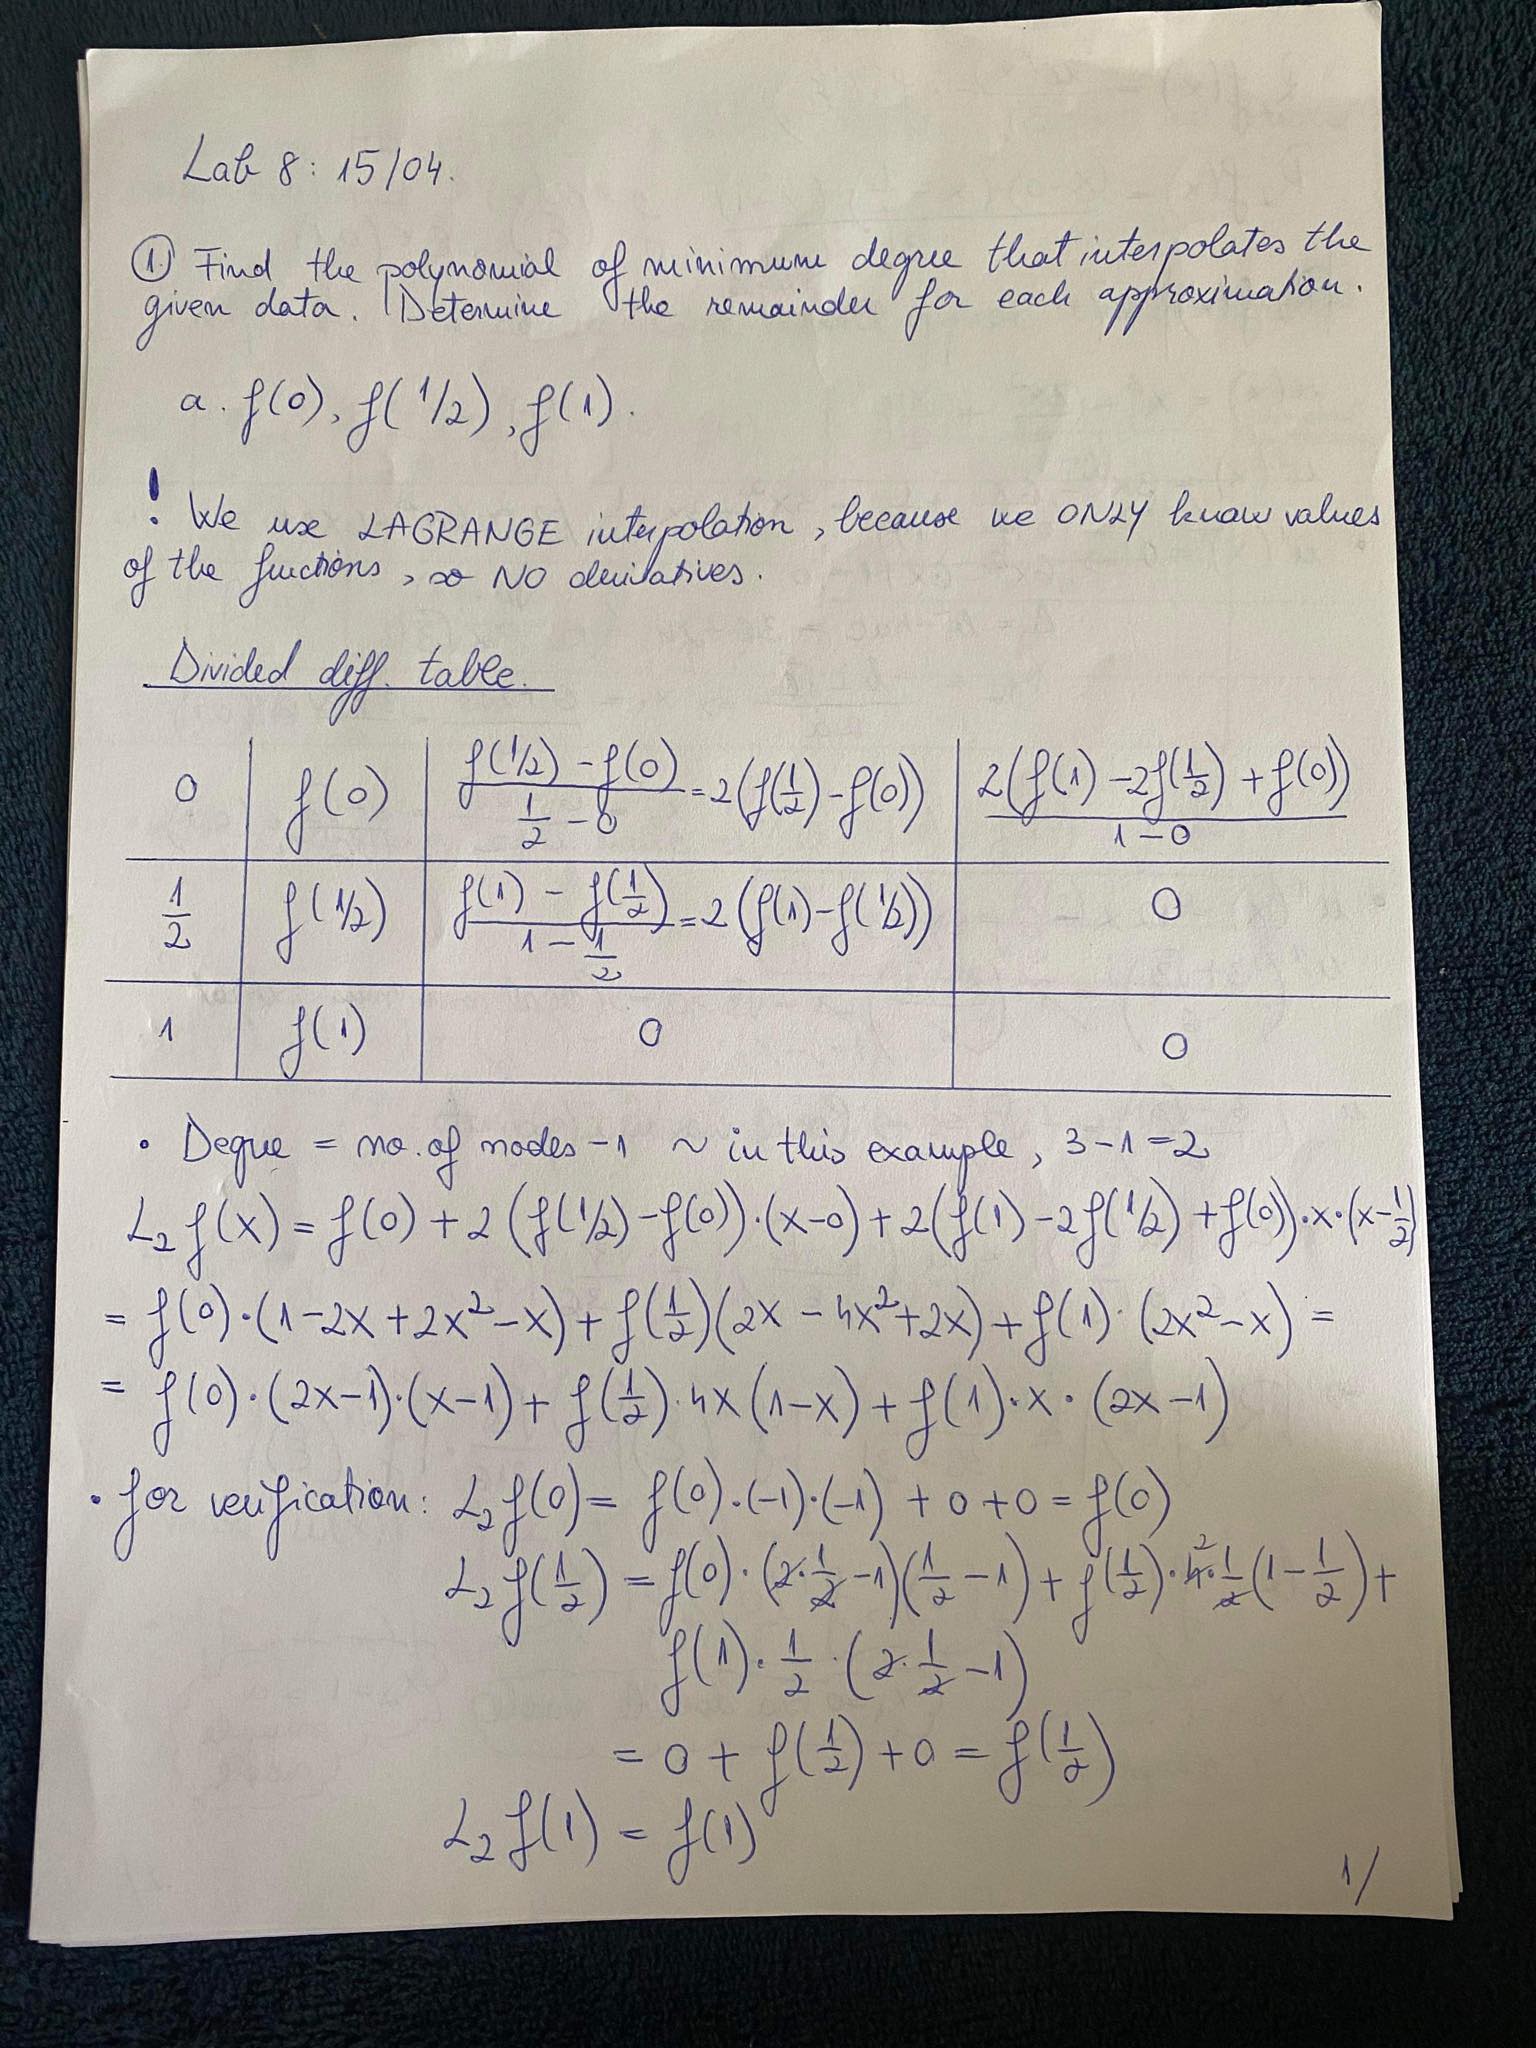 Lab 8: 15/04.
1. Find the polynomial of minimum degree that interpolates the
given data. Determine the remainder for each approximation.
a. f(0), f(1/2), f(1).
! We use LAGRANGE interpolation, because we ONLY know values
of the functions, so NO derivatives.
Divided diff. table.
0 | f(0) | (f(1/2) - f(0))/(1/2 - 0) = 2(f(1/2) - f(0)) | 2(f(1) - 2f(1/2) + f(0))/(1 - 0)
1/2 | f(1/2) | (f(1) - f(1/2))/(1 - 1/2) = 2(f(1) - f(1/2)) | 0
1 | f(1) | 0 | 0
• Degree = no. of nodes - 1 ~ in this example, 3 - 1 = 2
L₂f(x) = f(0) + 2(f(1/2) - f(0))·(x-0) + 2(f(1) - 2f(1/2) + f(0))·x·(x - 1/2)
= f(0)·(1 - 2x + 2x² - x) + f(1/2)(2x - 4x² + 2x) + f(1)·(2x² - x) =
= f(0)·(2x-1)·(x-1) + f(1/2)·4x(1-x) + f(1)·x·(2x-1)
• for verification: L₂f(0) = f(0)·(-1)·(-1) + 0 + 0 = f(0)
L₂f(1/2) = f(0)·(2·1/2 - 1)(1/2 - 1) + f(1/2)·4²·1/2(1 - 1/2) +
f(1)·1/2·(2·1/2 - 1)
= 0 + f(1/2) + 0 = f(1/2)
L₂f(1) = f(1)
1/